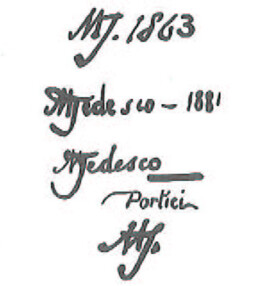 MT. 1863
MTedesco - 1881
MTedesco
Portici
MT.